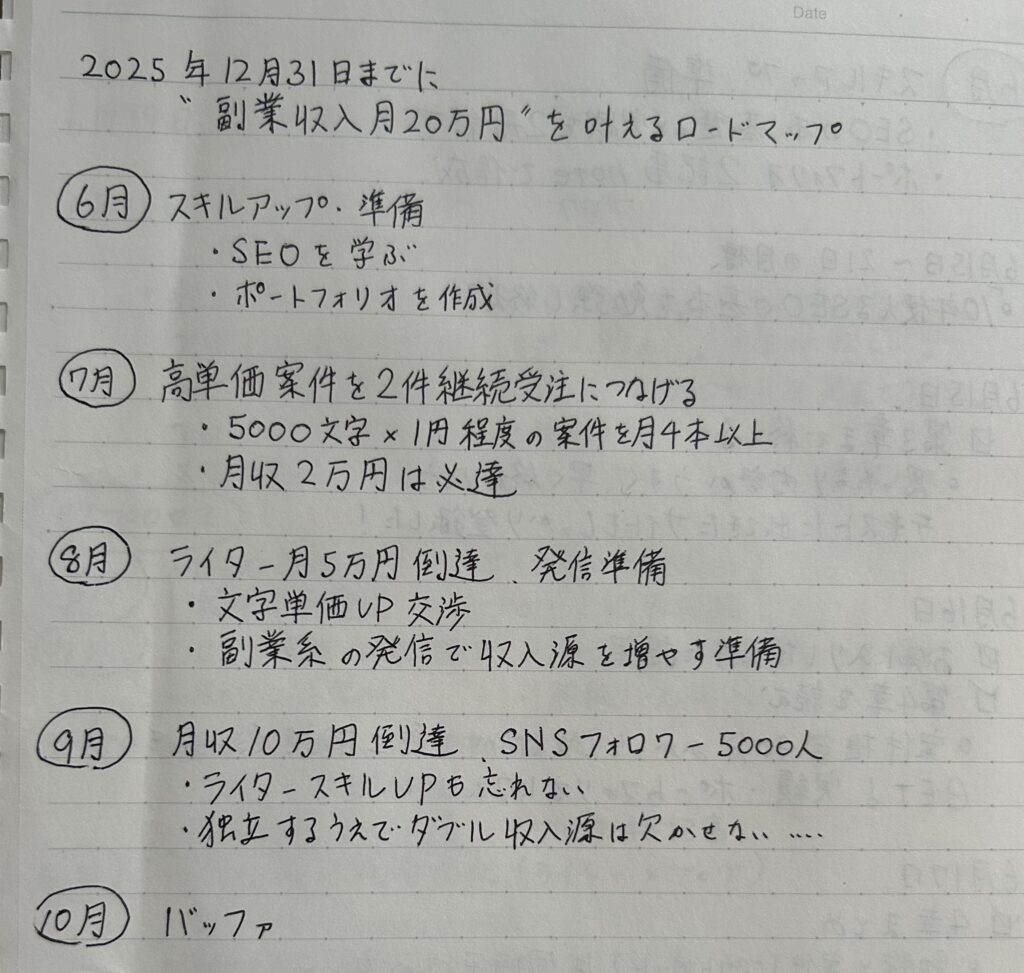 Date
2025年12月31日までに
〝副業収入月20万円〟を叶えるロードマップ
6月 スキルアップ・準備
・SEOを学ぶ
・ポートフォリオを作成
7月 高単価案件を2件継続受注につなげる
・5000文字×1円程度の案件を月4本以上
・月収2万円は必達
8月 ライター月5万円到達、発信準備
・文字単価UP交渉
・副業系の発信で収入源を増やす準備
9月 月収10万円到達、SNSフォロワー5000人
・ライタースキルUPも忘れない
・独立するうえでダブル収入源は欠かせない……
10月 バッファ